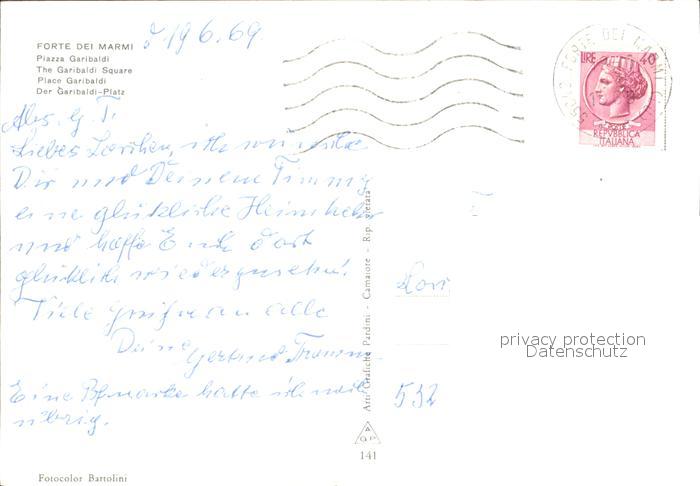 FORTE DEI MARMI
Piazza Garibaldi
The Garibaldi Square
Place Garibaldi
Der Garibaldi-Platz
19.6.69
Liebes Lorchen, ich wünsche
Dir und Deinem Timmy
eine glückliche Heimkehr
und hoffe Euch dort
glücklich wiederzusehen.
Viele Grüße an alle
Deine Gertrud
Eine Bfmarke hatte ich noch
übrig.
Fotocolor Bartolini
Arti Grafiche Pardini - Camaiore - Rip. vietata
AGP
141
FORTE DEI MARMI
LIRE 40
REPVBBLICA
ITALIANA
532
privacy protection
Datenschutz